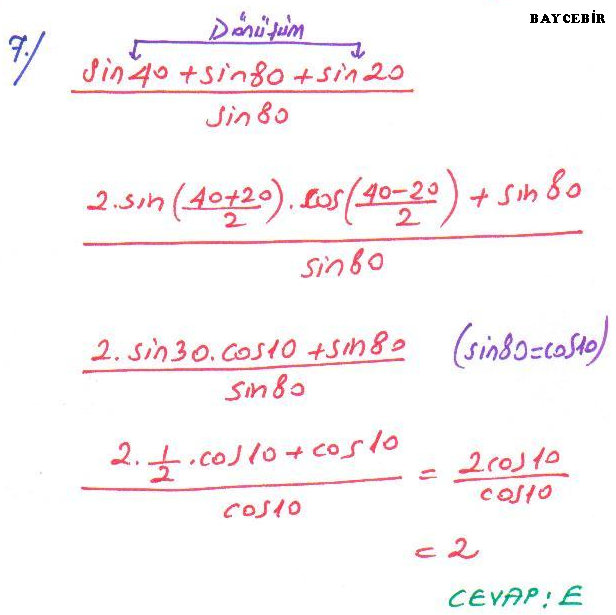 BAYCEBİR
Dönüşüm
7./
sin40 + sin80 + sin20
sin80
2.sin(40+20/2).cos(40-20/2) + sin80
sin80
2.sin30.cos10 + sin80 (sin80=cos10)
sin80
2.1/2.cos10 + cos10 = 2cos10
cos10 cos10
= 2
CEVAP: E